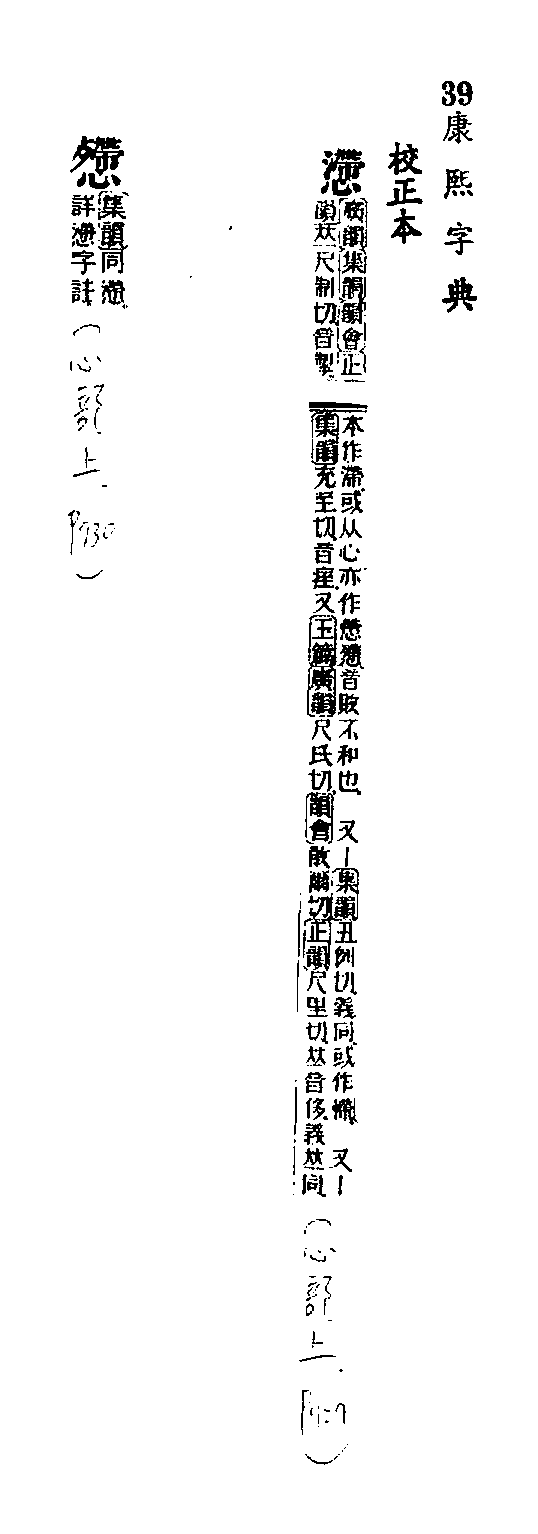 39康熙字典
校正本
懘
廣韻集韻韻會正
韻𠀤尺制切音掣
本作滯或从心亦作怗懘音敗不和也 又丨集韻丑例切義同或作㿃 又丨
集韻充至切音痓又玉篇廣韻尺氏切韻會敞爾切正韻尺里切𠀤音侈義𠀤同
(心部上 P929)
集韻同懘
詳懘字註
(心部上 P930)